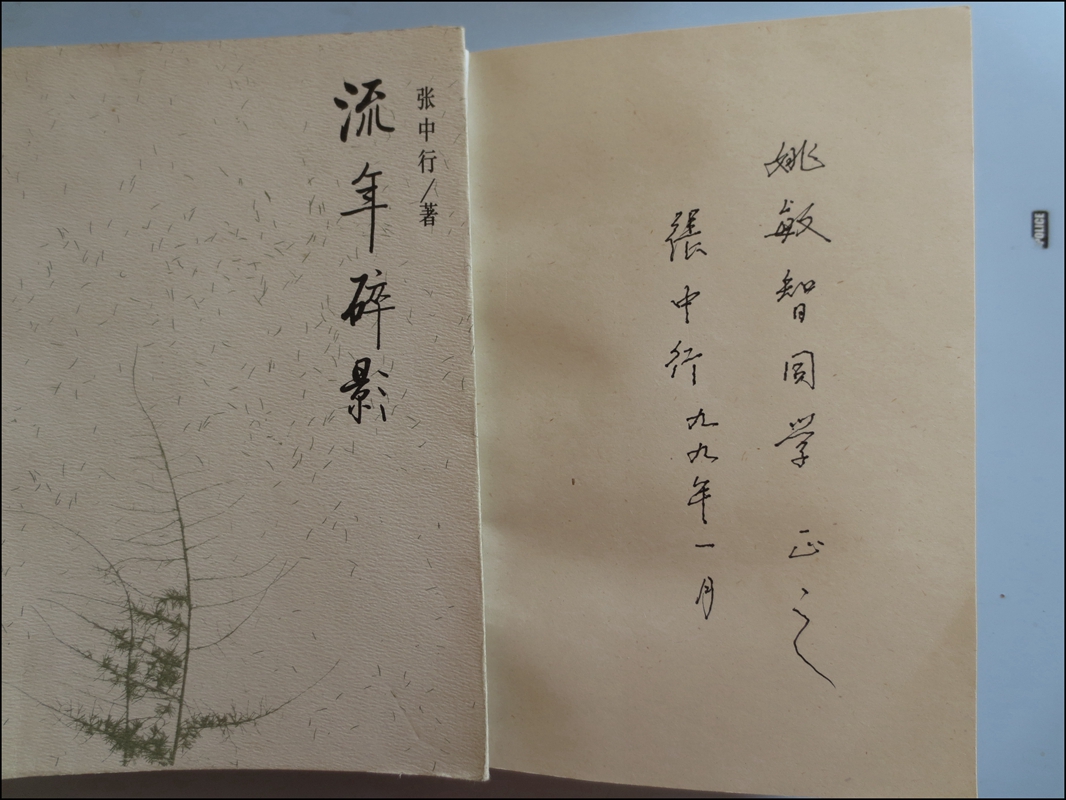 流年碎影
张中行/著
姚敏智同学 正之
張中行 九九年一月
POLICE